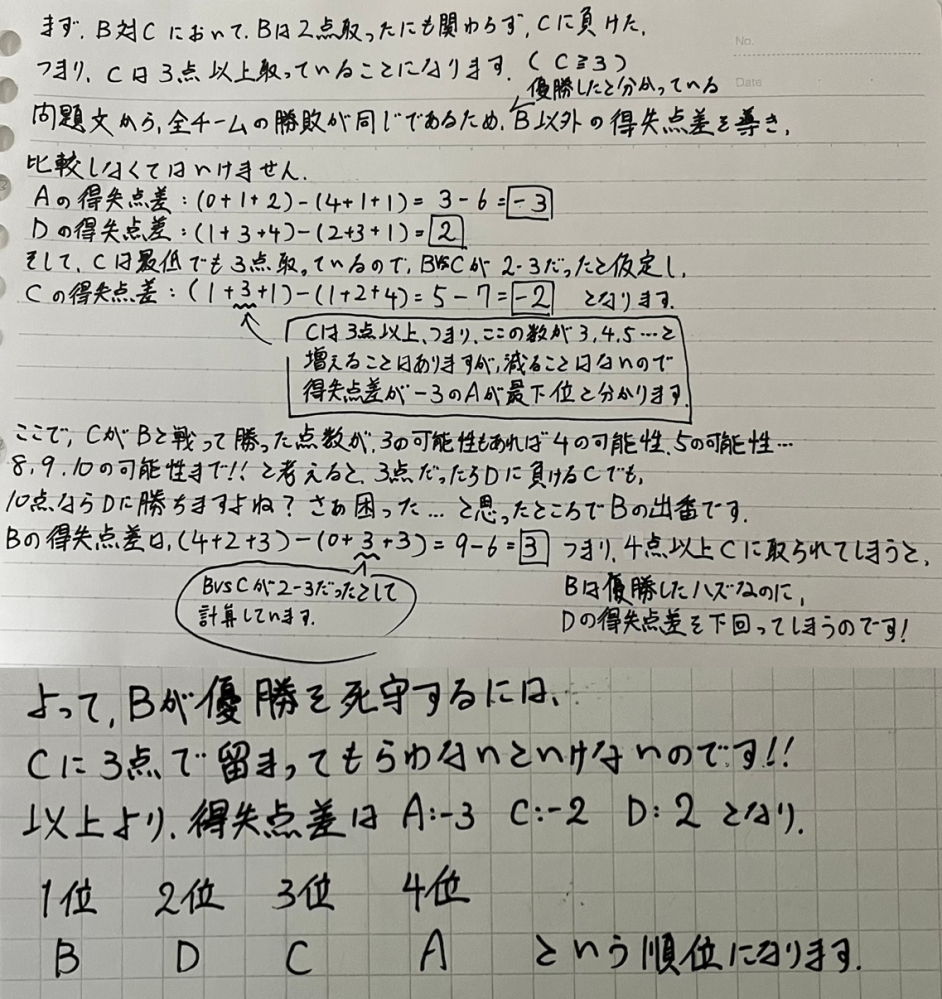 No.
Date
まず、B対Cにおいて、Bは2点取ったにも関わらず、Cに負けた、
つまり、Cは3点以上取っていることになります。(C≧3)
優勝したと分かっている
問題文から、全チームの勝敗が同じであるため、B以外の得失点差を導き、
比較しなくてはいけません。
Aの得失点差:(0+1+2)-(4+1+1)=3-6=-3
Dの得失点差:(1+3+4)-(2+3+1)=2
そして、Cは最低でも3点取っているので、BvsCが2-3だったと仮定し、
Cの得失点差:(1+3+1)-(1+2+4)=5-7=-2 となります。
Cは3点以上、つまり、ここの数が3,4,5…と
増えることはありますが、減ることはないので
得失点差が-3のAが最下位と分かります。
ここで、CがBと戦って勝った点数が、3の可能性もあれば4の可能性、5の可能性…
8,9,10の可能性まで!!と考えると、3点だったらDに負けるCでも、
10点ならDに勝ちますよね?さぁ困った…と思ったところでBの出番です。
Bの得失点差は、(4+2+3)-(0+3+3)=9-6=3 つまり、4点以上Cに取られてしまうと、
BvsCが2-3だったとして
計算しています。
Bは優勝したハズなのに、
Dの得失点差を下回ってしまうのです!
よって、Bが優勝を死守するには、
Cに3点で留まってもらわないといけないのです!!
以上より、得失点差は A:-3 C:-2 D:2 となり、
1位 2位 3位 4位
B D C A という順位になります。